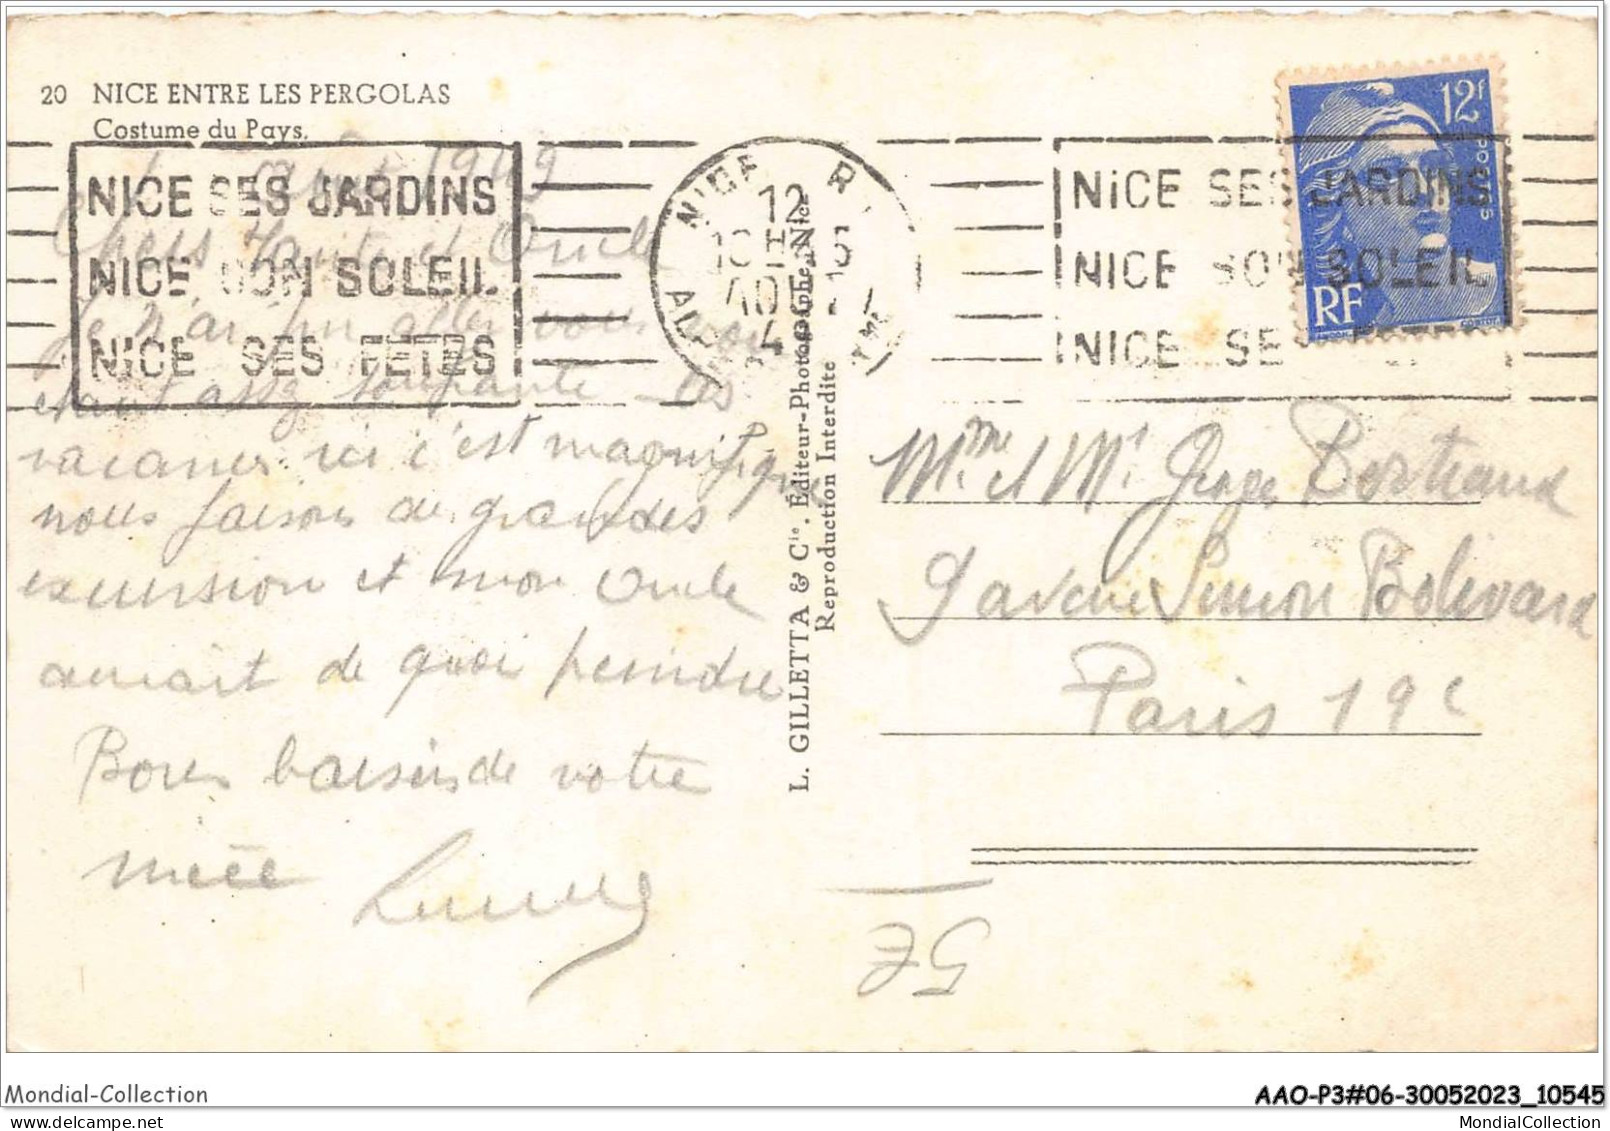 20 NICE ENTRE LES PERGOLAS
Costume du Pays.
Août 1949
NICE SES JARDINS
NICE SON SOLEIL
NICE SES FETES
Chers Tante et Oncle
Je n'ai pu aller vous voir
étant assez souffrante les
vacances ici c'est magnifique
nous faisons de grandes
excursion et mon Oncle
aurait de quoi peindre
Bons baisers de votre
nièce
L. GILLETTA & Cie. Éditeur-Photographe, Nice
Reproduction Interdite
NICE R
12
AOUT
NICE SES JARDINS
NICE SON SOLEIL
NICE SES FETES
12F
POSTES
RF
Mme et Mr George Bertrand
9 avenue Simon Bolivard
Paris 19e
5F
Mondial-Collection
AAO-P3#06-30052023_10545
www.delcampe.net
MondialCollection